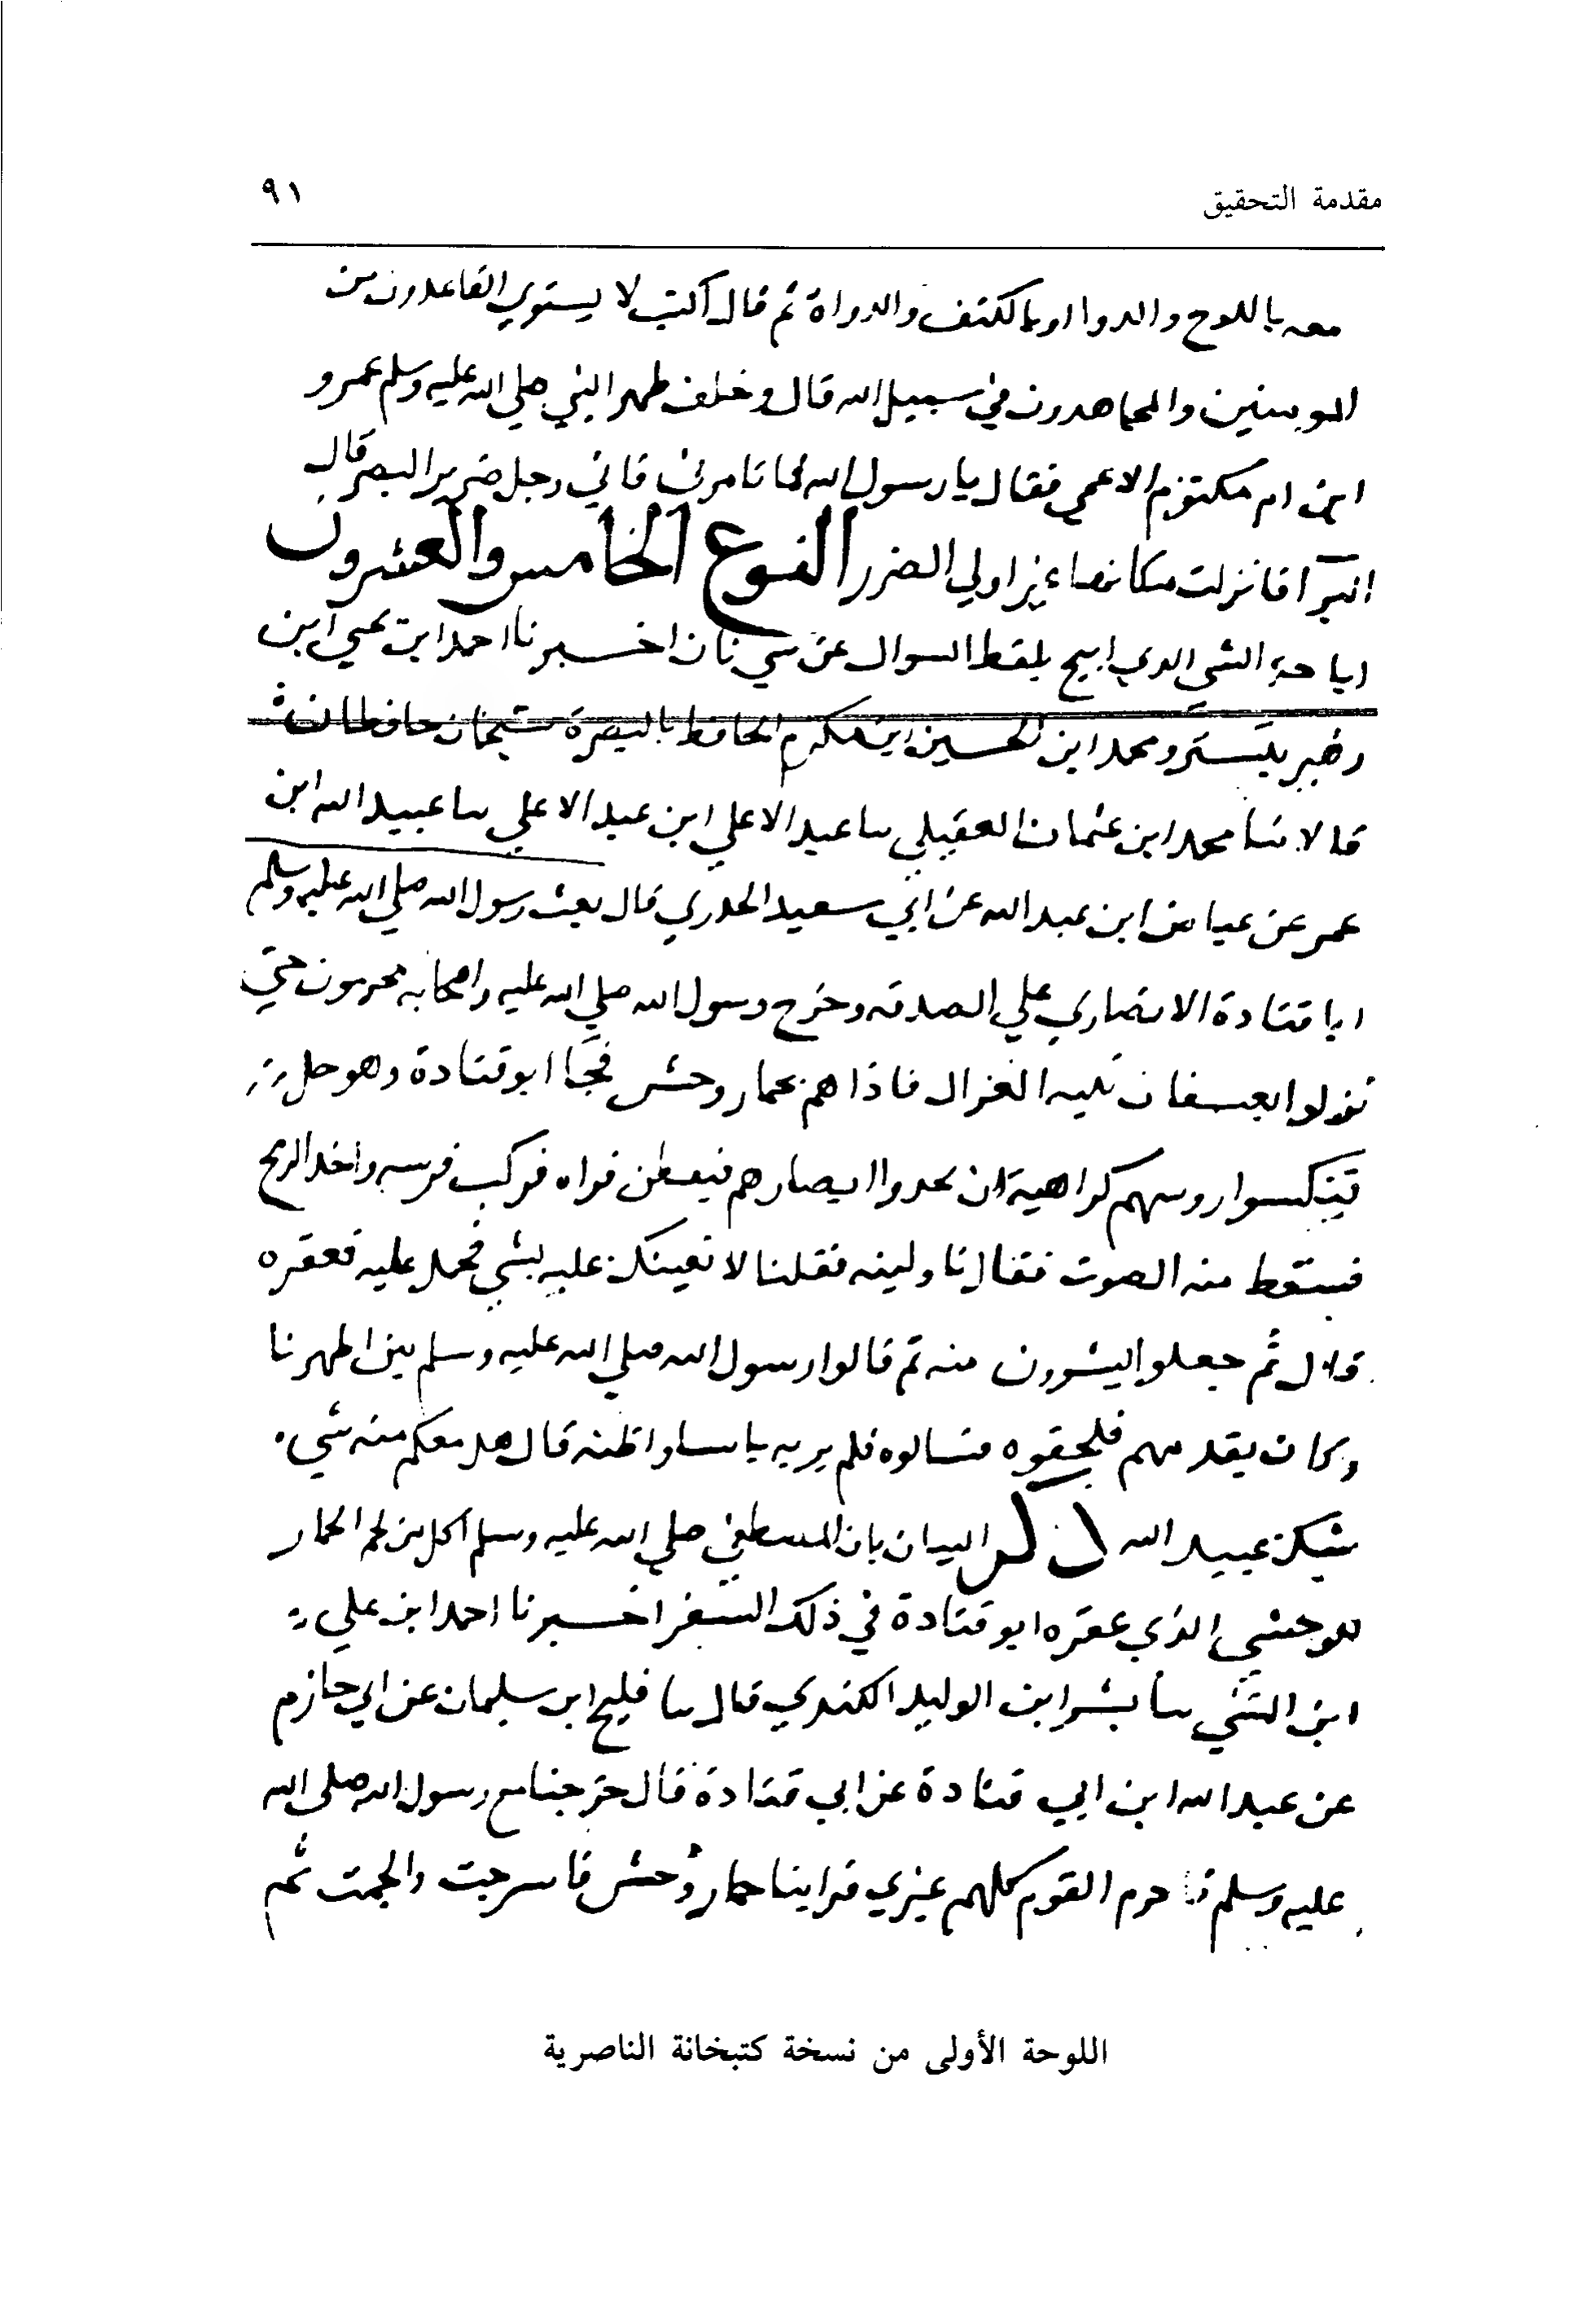 مقدمة التحقيق
٩١
معه باللوح والدوا او بالكتف والدواة ثم قال اكتب لا يستوي القاعدون من
المومنين والمجاهدون في سبيل الله قال وخلف ظهر النبي صلي الله عليه وسلم عمرو
ابن ام مكتوم الاعمي فقال يا رسول الله فما تامرني فاني رجل ضرير البصر قال
البرآ فانزلت مكانها غير اولي الضرر النوع الخامس والعشرون
اباحة الشي الذي ابيح بلفظ السوال عن شي ثان اخبرنا احمد ابن يحيي ابن
زهير بتستر ومحمد ابن الحسين ابن مكرم الحافظ بالبصرة شيخان حافظان
قالا ثنا محمد ابن عثمان العقيلي ثنا عبد الاعلي ابن عبد الاعلي ثنا عبيد الله ابن
عمر عن عياض ابن عبد الله عن ابي سعيد الخدري قال بعث رسول الله صلي الله عليه وسلم
ابا قتادة الانصاري علي الصدقه وخرج رسول الله صلي الله عليه واصحابه محرمون حتي
نزلوا بعسفان ثنيه الغزال فاذا هم بحمار وحش فجآ ابو قتادة وهو حل
فنكسوا روسهم كراهية ان يحدوا ابصارهم فيفطن فراه فركب فرسه واخذ الرمح
فسقط منه الصوت فقال ناولينه فقلنا لا نعينك عليه بشي فحمل عليه فعقره
قال ثم جعلوا يشوون منه ثم قالوا رسول الله صلي الله عليه وسلم بين اظهرنا
وكان يقدمهم فلحقوه فسالوه فلم ير به باسا واظنه قال هل معكم منه شي
شك عبيد الله البيان بان المصطفي صلي الله عليه وسلم اكل من لحم الحمار
للوحشي الذي عقره ابو قتادة في ذلك السفر اخبرنا احمد ابن علي
ابن المثني ثنا بشر ابن الوليد الكندي قال ثنا فليح ابن سليمان عن ابي حازم
عن عبد الله ابن ابي قتادة عن ابي قتادة قال خرجنا مع رسول الله صلي الله
عليه وسلم حرم القوم كلهم غيري فراينا حمار وحش فاسرجت والجمت ثم
اللوحة الأولى من نسخة كتبخانة الناصرية